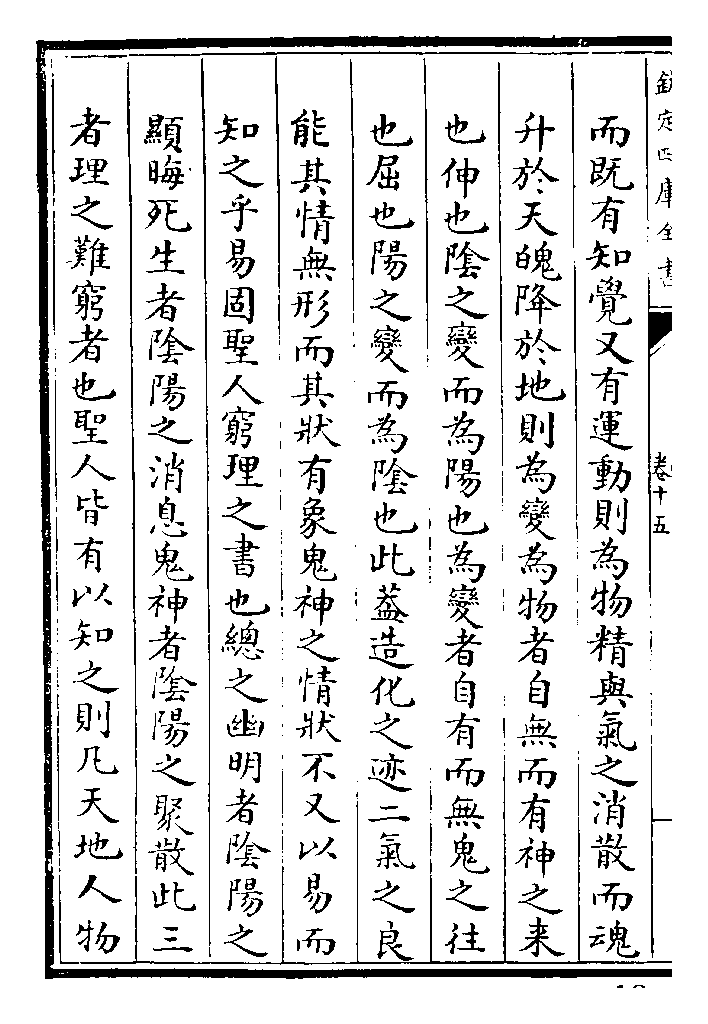 欽定四庫全書
卷十五
而既有知覺又有運動則為物精與氣之消散而魂
升於天魄降於地則為變為物者自無而有神之来
也伸也陰之變而為陽也為變者自有而無鬼之往
也屈也陽之變而為陰也此葢造化之迹二氣之良
能其情無形而其狀有象鬼神之情狀不又以易而
知之乎易固聖人窮理之書也總之幽明者陰陽之
顯晦死生者陰陽之消息鬼神者陰陽之聚散此三
者理之難窮者也聖人皆有以知之則凡天地人物